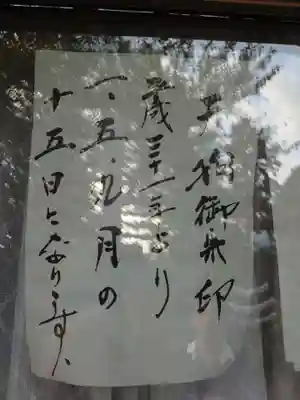 御朱印
三十一年より
一・五・九月の
十五日となります、